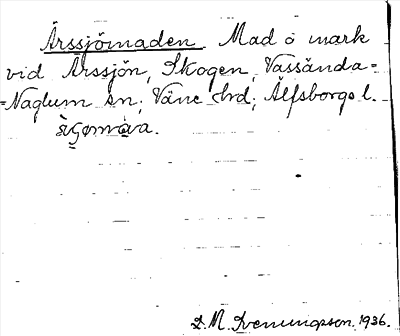 Årssjömaden. Mad o mark
vid Årssjön, Skogen, Vässända=
=Naglum sn; Väne hrd; Älfsborgs l.
D. M. Svenningson. 1936.